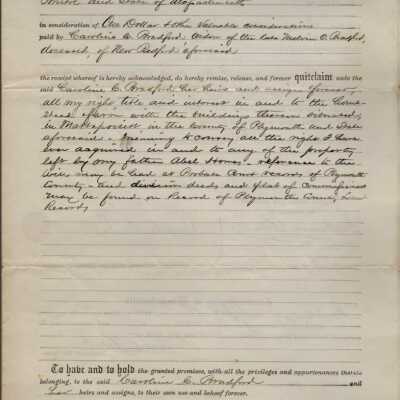 Bristol and State of Massachusetts
in consideration of One Dollar & other Valuable considerations
paid by Caroline C. Bradford widow of the late Melvin O. Bradford,
deceased, of New Bedford aforesaid
the receipt whereof is hereby acknowledged, do hereby remise, release, and forever quitclaim unto the
said Caroline C. Bradford, her heirs and assigns forever,
all my right title and interest in and to the Home-
stead Farm with the buildings thereon situated,
in Mattapoisett in the County of Plymouth and State
aforesaid - meaning to convey all the right I have
ever acquired in and to any of the property
left by my father Abel - reference to the
Will may be had at Probate Court records of Plymouth
County - and division deeds and plat of Commissioners
may be found on Record of Plymouth County Land
Records
To have and to hold the granted premises, with all the privileges and appurtenances thereto
belonging, to the said Caroline C. Bradford and
her heirs and assigns, to their own use and behoof forever.